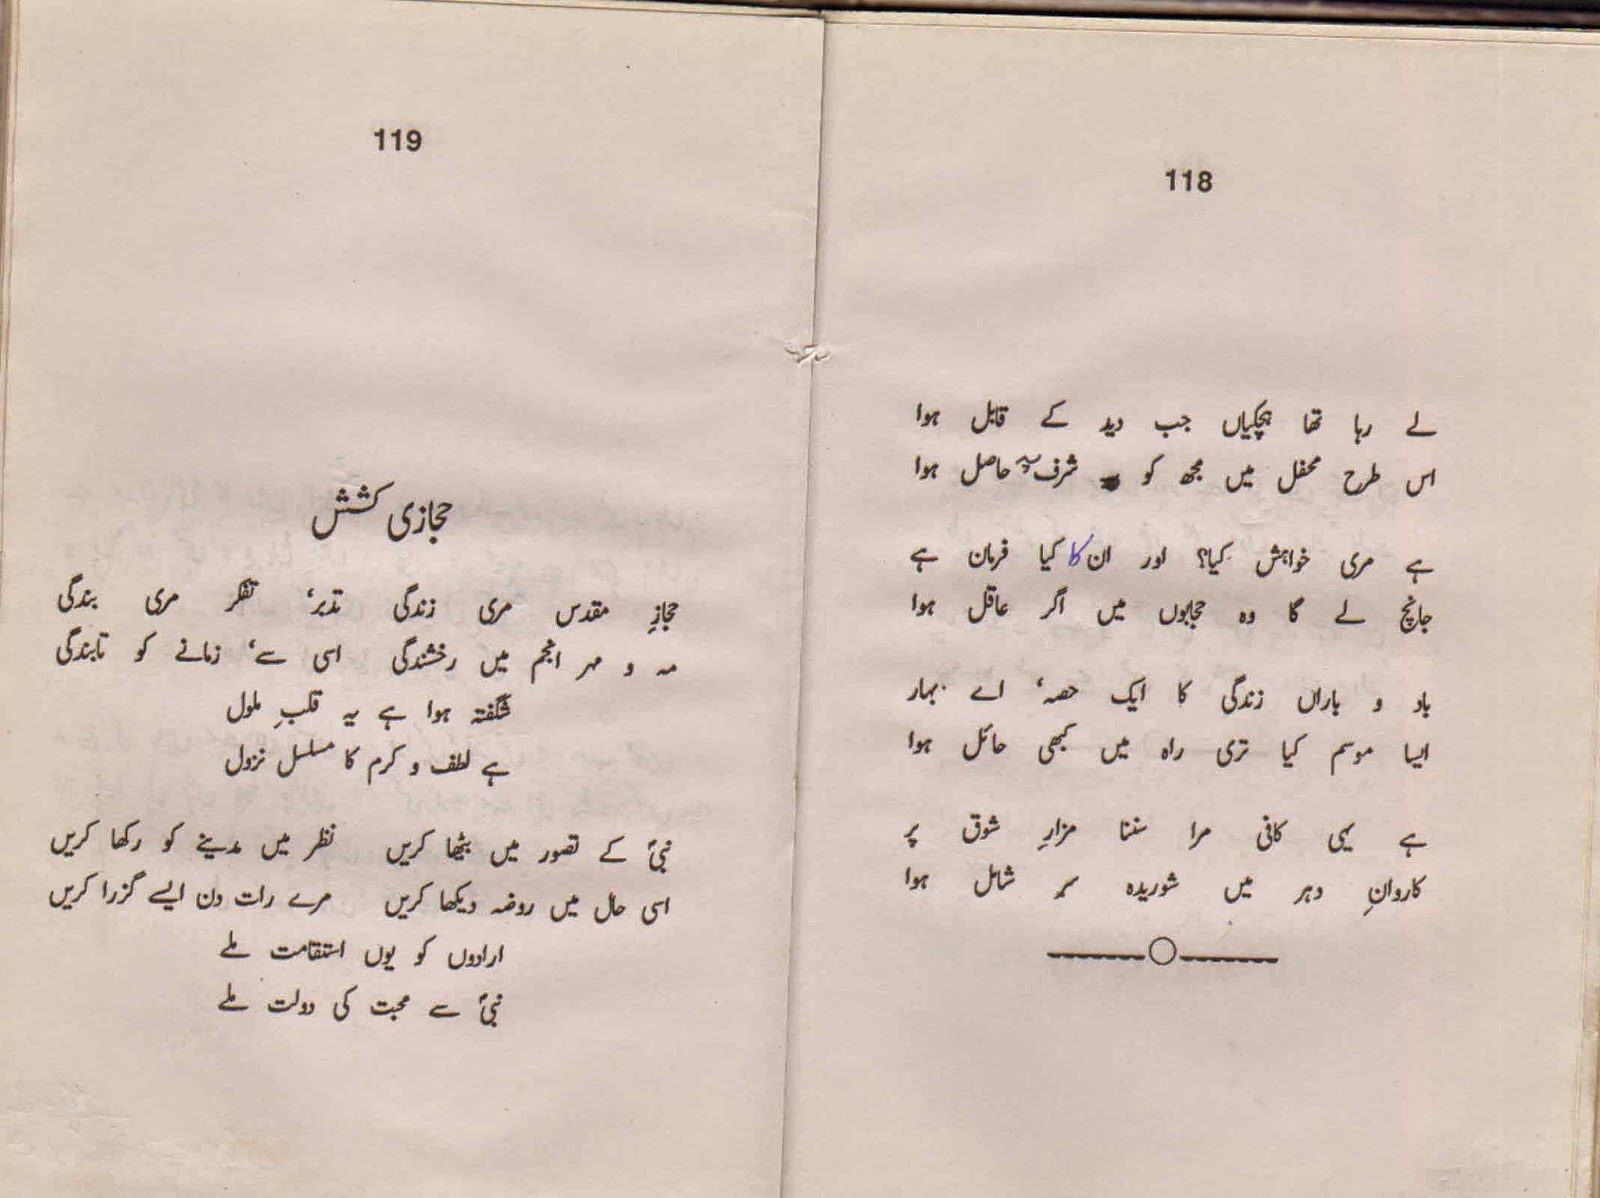 118
لے رہا تھا ہچکیاں جب دید کے قابل ہوا
اس طرح محفل میں مجھ کو شرف یہ حاصل ہوا
ہے مری خواہش کیا؟ اور ان کا کیا فرمان ہے
جانچ لے گا وہ حجابوں میں اگر عاقل ہوا
باد و باراں زندگی کا ایک حصہ، اے بہار
ایسا موسم کیا تری راہ میں کبھی حائل ہوا
ہے یہی کافی مرا سننا مزارِ شوق پر
کاروانِ دہر میں شوریدہ سر شامل ہوا
119
حجازی کشش
حجازِ مقدس مری زندگی تدبر، تفکر مری بندگی
مہ و مہر انجم میں رخشندگی اسی سے، زمانے کو تابندگی
شگفتہ ہوا ہے یہ قلبِ ملول
ہے لطف و کرم کا مسلسل نزول
نبیؐ کے تصور میں بیٹھا کریں نظر میں مدینے کو رکھا کریں
اسی حال میں روضہ دیکھا کریں مرے رات دن ایسے گزرا کریں
ارادوں کو یوں استقامت ملے
نبیؐ سے محبت کی دولت ملے